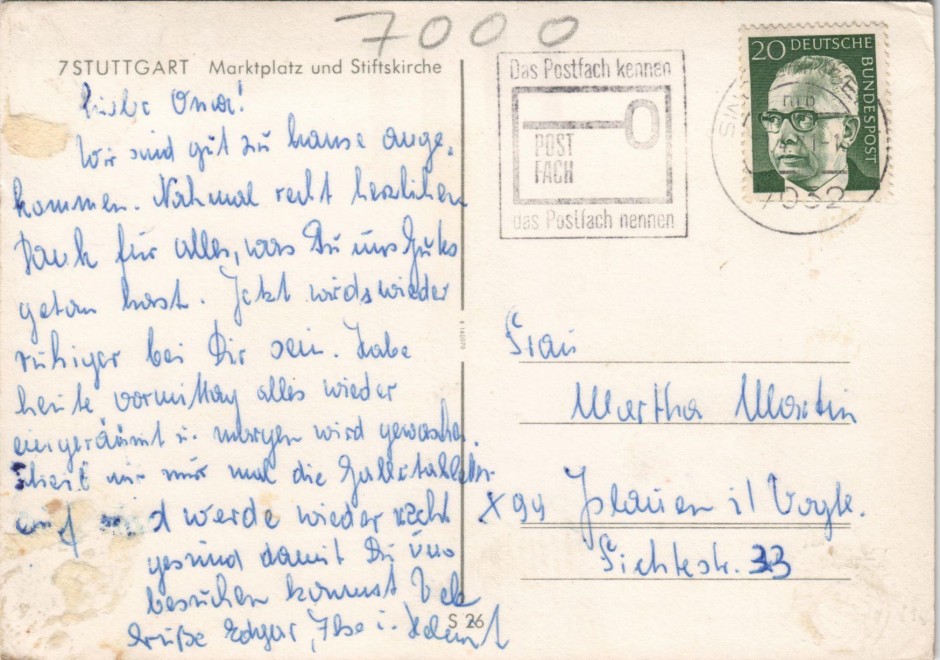 7000
7 STUTTGART Marktplatz und Stiftskirche
Liebe Oma!
Wir sind gut zu hause ange-
kommen. Nochmal recht herzlichen
Dank für alles, was Du uns Gutes
getan hast. Jetzt wirds wieder
ruhiger bei Dir sein. Habe
heute vormittag alles wieder
eingeräumt u. morgen wird gewaschen.
mir nur mal die Galletabletten
d werde wieder recht
gesund damit Du uns
besuchen kommst
Grüße Edgar, Ilse u. Helmut
Das Postfach kennen
POST
FACH
das Postfach nennen
20 DEUTSCHE
BUNDESPOST
7032
Frau
Martha Martin
X 99 Plauen i/ Vogtl.
Fichtestr. 33
S 26